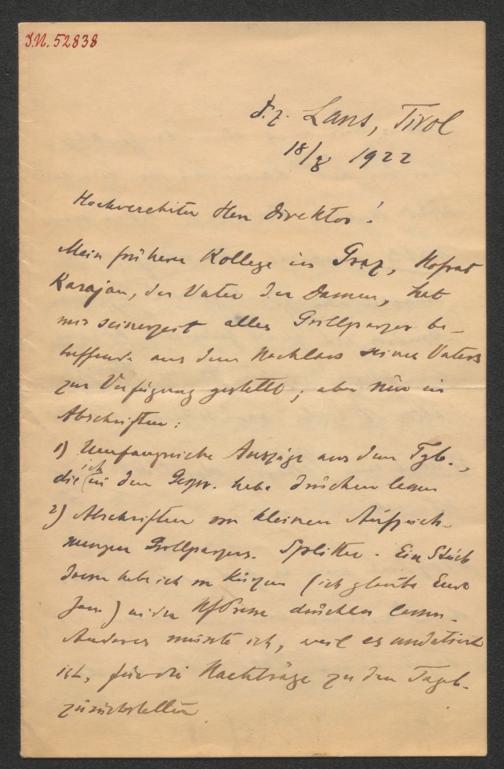 I.N. 52838
d. z. Lans, Tirol
18/8 1922
Hochverehrter Herr Direktor!
Mein früherer Kollege in Graz, Hofrat
Karajan, der Vater der Damen, hat
mir seinerzeit alles Grillparzer be-
treffende aus dem Nachlass seines Vaters
zur Verfügung gestellt; aber nur in
Abschriften:
1) Umfangreiche Auszüge aus dem Tgb.,
die ich in den Gespr. habe drucken lassen
2) Abschriften von kleinen Aufzeich-
nungen Grillparzers. Splitter. Ein Stück
davon habe ich vor kurzem (ich glaube Ende
Jan) in der NfPresse drucken lassen.
Anderes musste ich, weil es undatiert
ist, für die Nachträge zu den Tageb.
zurückstellen